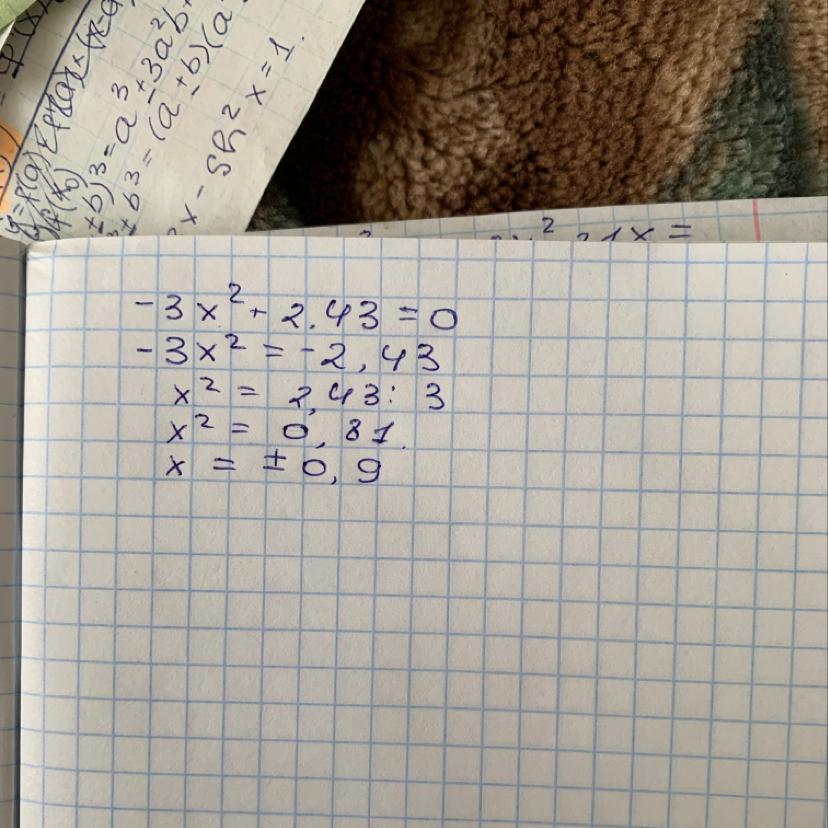 ±b)3=a³±3a²b+
± b3 = (a ± b)(a
x - sh² x = 1.
² 21x =
-3x² + 2.43 = 0
-3x² = -2,43
x² = 2,43: 3
x² = 0,81.
x = ±0,9